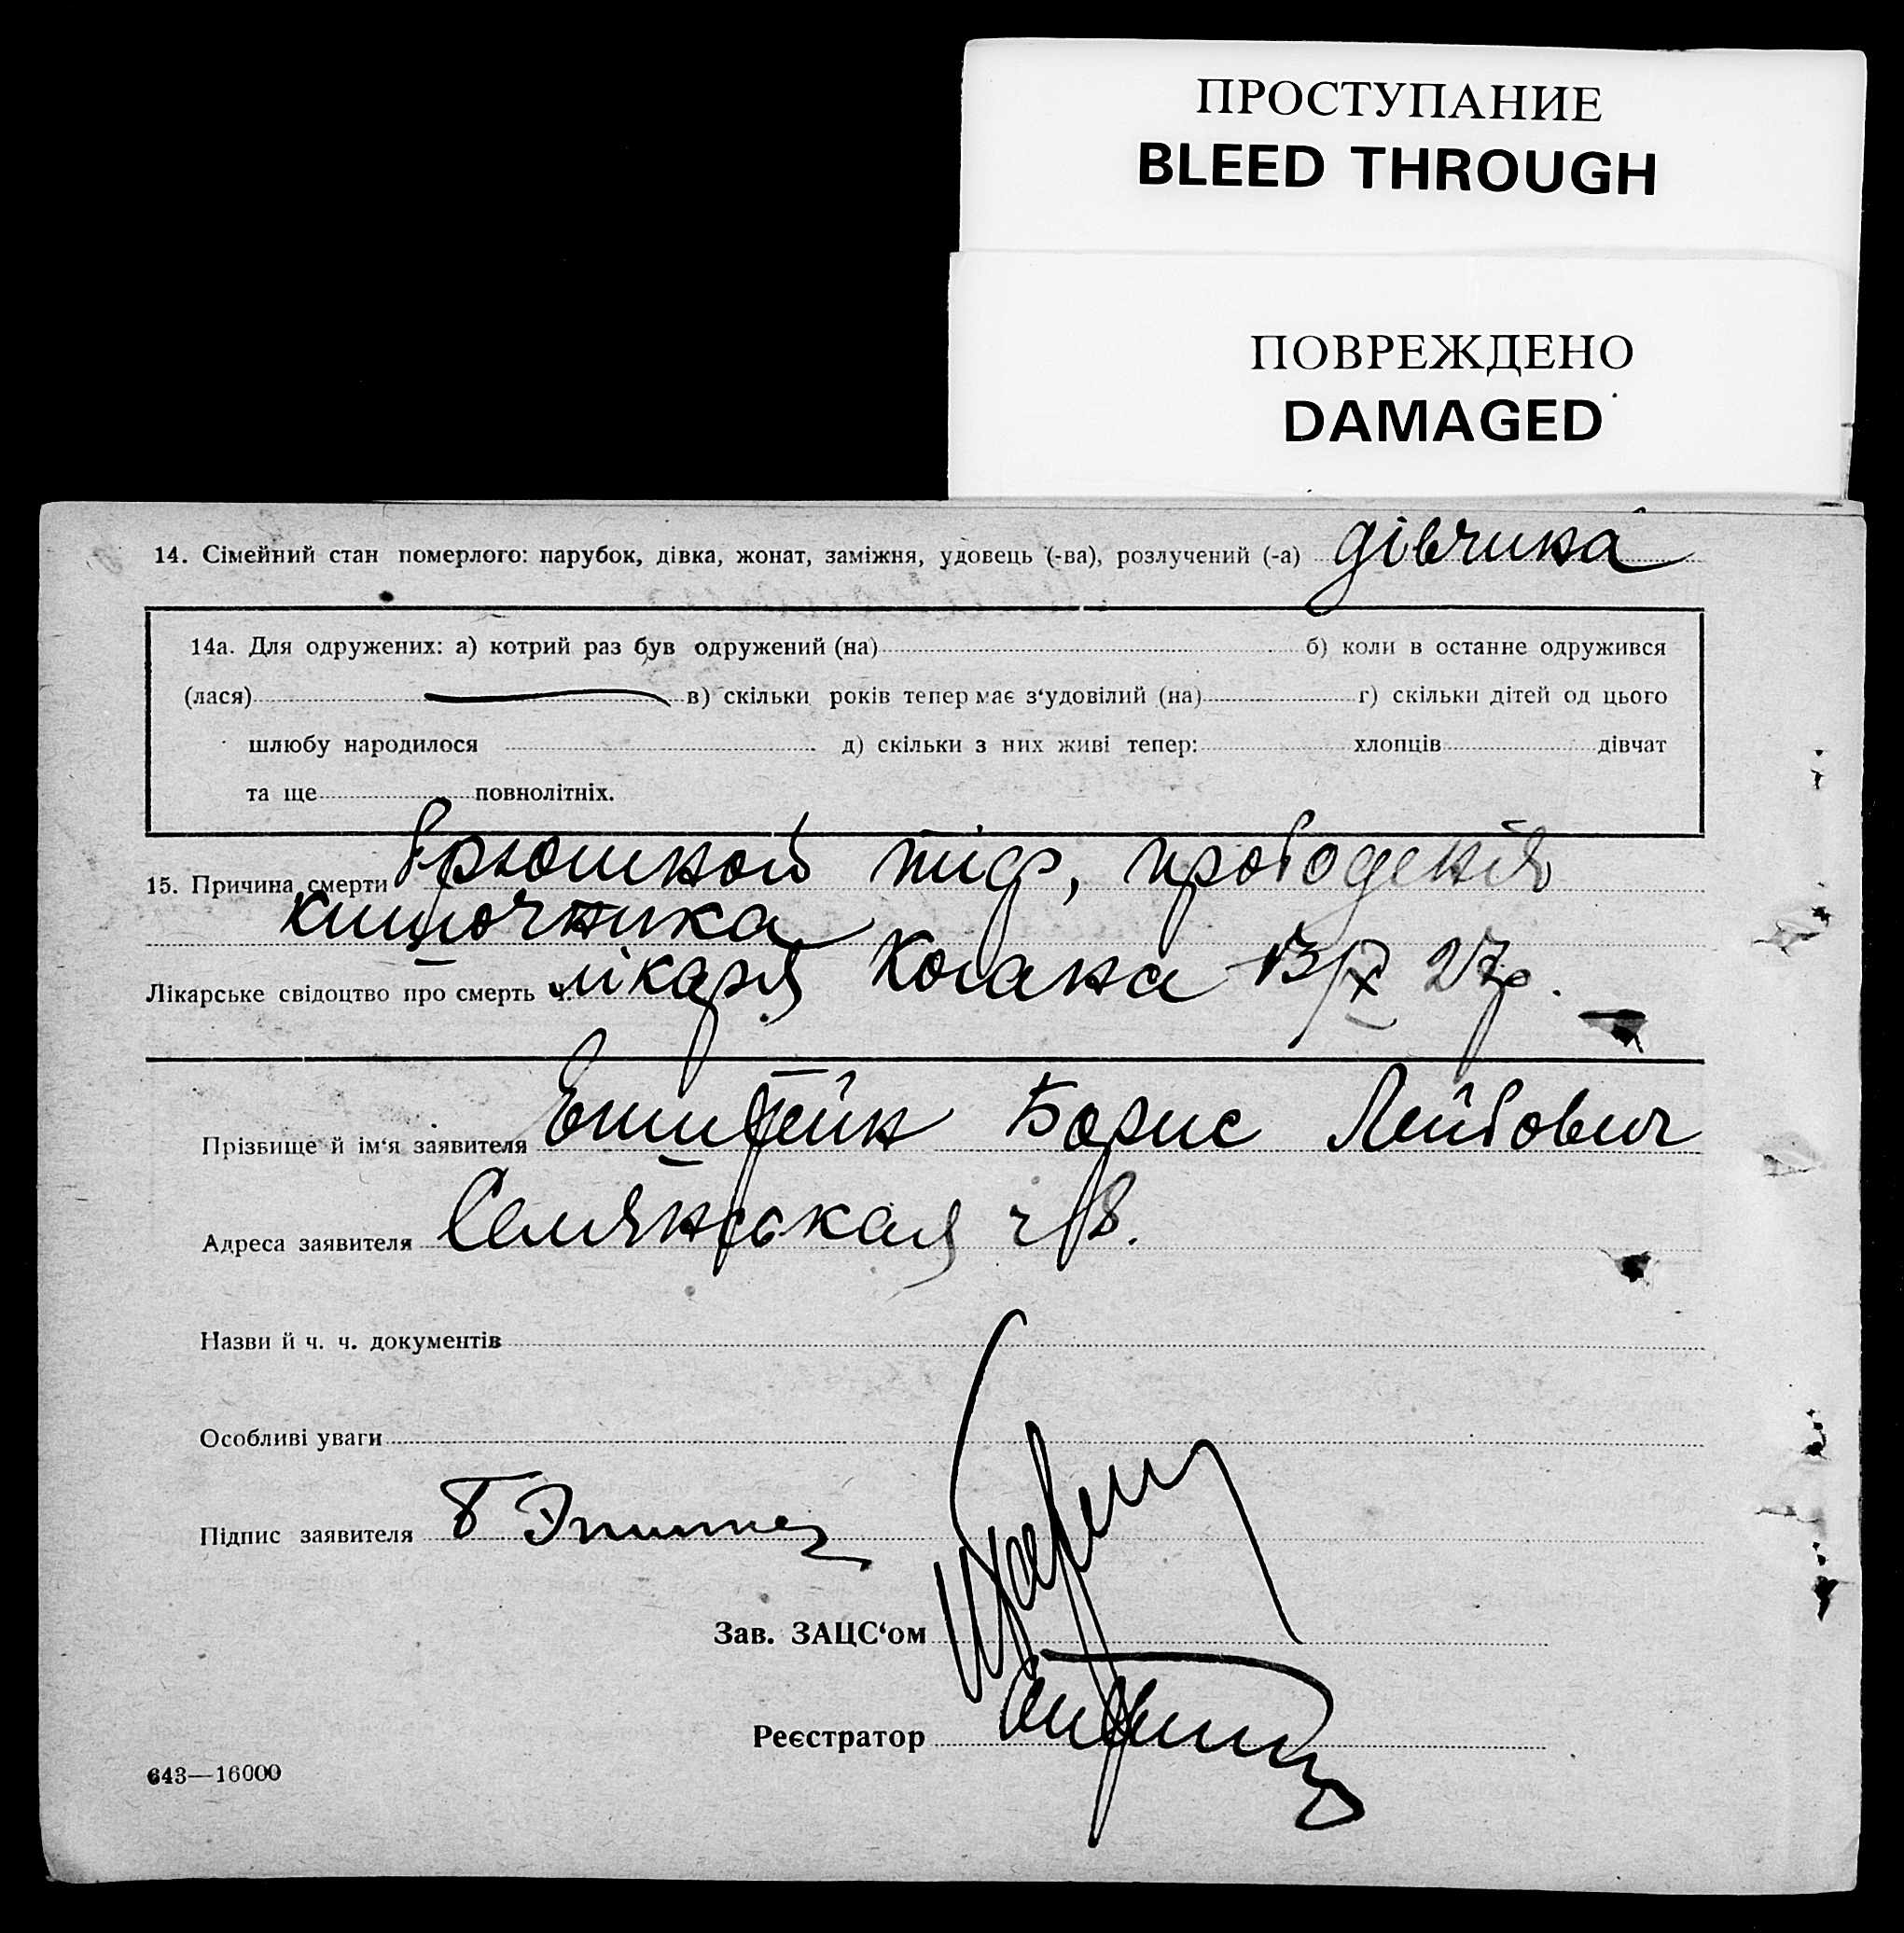 ПРОСТУПАНИЕ
BLEED THROUGH
ПОВРЕЖДЕНО
DAMAGED
14. Сімейний стан померлого: парубок, дівка, жонат, заміжня, удовець (-ва), розлучений (-а) дівчина
14а. Для одружених: а) котрий раз був одружений (на) б) коли в останне одружився
(лася) в) скільки років тепер має з‘удовілий (на) г) скільки дітей од цього
шлюбу народилося д) скільки з них живі тепер: хлопців дівчат
та ще повнолітніх.
15. Причина смерти брюшной тиф, прободения
кишочника
Лікарське свідоцтво про смерть ч. лікаря Когана 13/IX 27р.
Прізвище й ім‘я заявителя Епштейн Борис Лейбович
Адреса заявителя
Назви й ч. ч. документів
Особливі уваги
Підпис заявителя Б
Зав. ЗАЦС‘ом
Реєстратор
643—16000